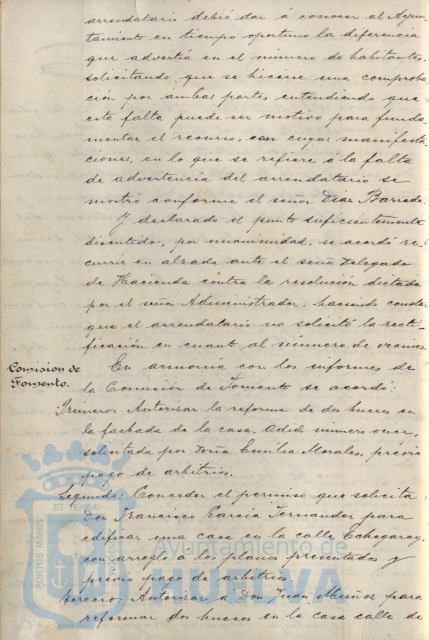 arrendatario debió dar á conocer al Ayun-
tamiento en tiempo oportuno la diferencia
que advertia en el número de habitantes,
solicitando que se hiciese una comproba-
ción por ambas partes entendiendo que
esta falta puede ser motivo para funda-
mentar el recurso, con cuyas manifesta-
ciones, en lo que se refiere á la falta
de advertencia del arrendatario se
mostró conforme el señor Diaz Barreda.
Y declarado el punto suficientemente
discutido, por unanimidad, se acordó re-
currir en alzada ante el señor Delegado
de Hacienda contra la resolución dictada
por el señor Administrador, haciendo constar
que el arrendatario no solicitó la recti-
ficación en cuanto al número de vecinos.
Comision de
Fomento.
En armonía con los informes de
la Comisión de Fomento se acordó:
Primero: Autorizar la reforma de dos huecos en
la fachada de la casa, número once,
solicitada por Doña Emilia Morales, previo
pago de arbitrios.
Segundo: Conceder el permiso que solicita
Don Francisco Garcia Fernandez para
edificar una casa en la calle Echegaray,
con arreglo á los planos presentados y
previo pago de arbitrios.
Tercero: Autorizar á Don Juan Muñoz para
reformar dos huecos en la casa calle de
PORTUS MARIS
ET TERRÆ
Ayuntamiento de
HUELVA